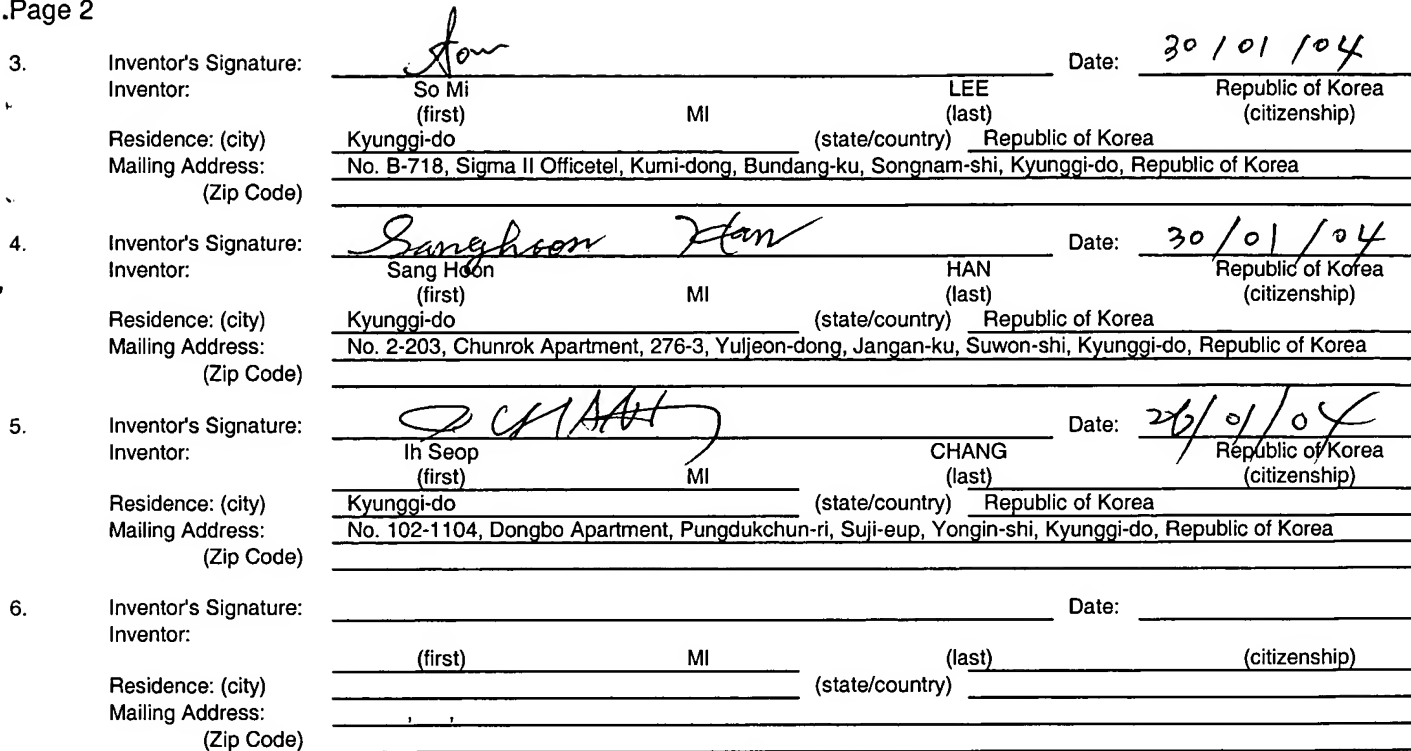 .Page 2
3. Inventor's Signature: Date: 30/01/04
Inventor: So Mi LEE Republic of Korea
(first) MI (last) (citizenship)
Residence: (city) Kyunggi-do (state/country) Republic of Korea
Mailing Address: No. B-718, Sigma II Officetel, Kumi-dong, Bundang-ku, Songnam-shi, Kyunggi-do, Republic of Korea
(Zip Code)
4. Inventor's Signature: Sanghoon Han Date: 30/01/04
Inventor: Sang Hoon HAN Republic of Korea
(first) MI (last) (citizenship)
Residence: (city) Kyunggi-do (state/country) Republic of Korea
Mailing Address: No. 2-203, Chunrok Apartment, 276-3, Yuljeon-dong, Jangan-ku, Suwon-shi, Kyunggi-do, Republic of Korea
(Zip Code)
5. Inventor's Signature: Date:
Inventor: Ih Seop CHANG Republic of Korea
(first) MI (last) (citizenship)
Residence: (city) Kyunggi-do (state/country) Republic of Korea
Mailing Address: No. 102-1104, Dongbo Apartment, Pungdukchun-ri, Suji-eup, Yongin-shi, Kyunggi-do, Republic of Korea
(Zip Code)
6. Inventor's Signature: Date:
Inventor:
(first) MI (last) (citizenship)
Residence: (city) (state/country)
Mailing Address: , ,
(Zip Code)